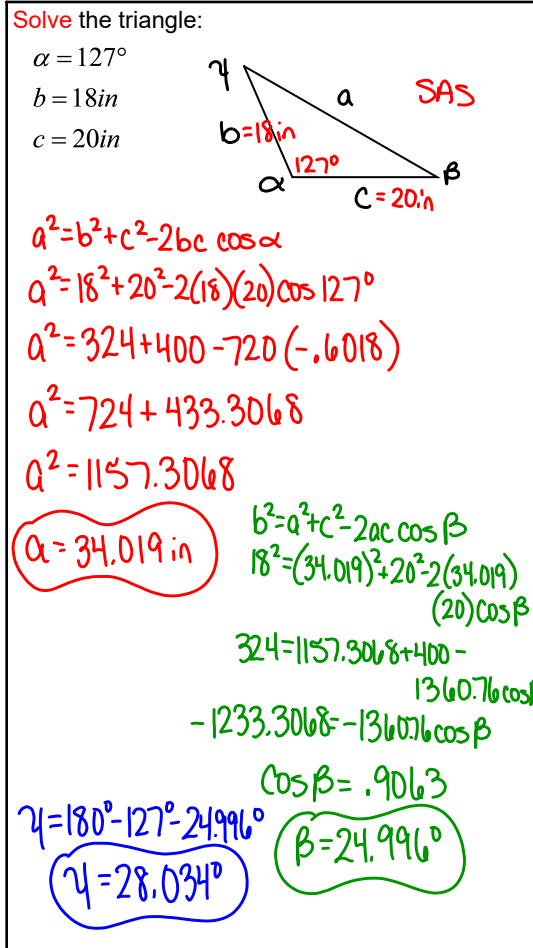 Solve the triangle:
α = 127°
b = 18in
c = 20in
γ
a
SAS
b=18in
127°
α
β
c = 20in
a²=b²+c²-2bc cosα
a²=18²+20²-2(18)(20)cos 127°
a²=324+400-720(-.6018)
a²=724+433.3068
a²=1157.3068
a=34.019 in
b²=a²+c²-2ac cosβ
18²=(34.019)²+20²-2(34.019)
(20)cosβ
324=1157.3068+400-
1360.76cosβ
-1233.3068=-1360.76cosβ
cosβ= .9063
β=24.996°
γ=180°-127°-24.996°
γ=28.034°